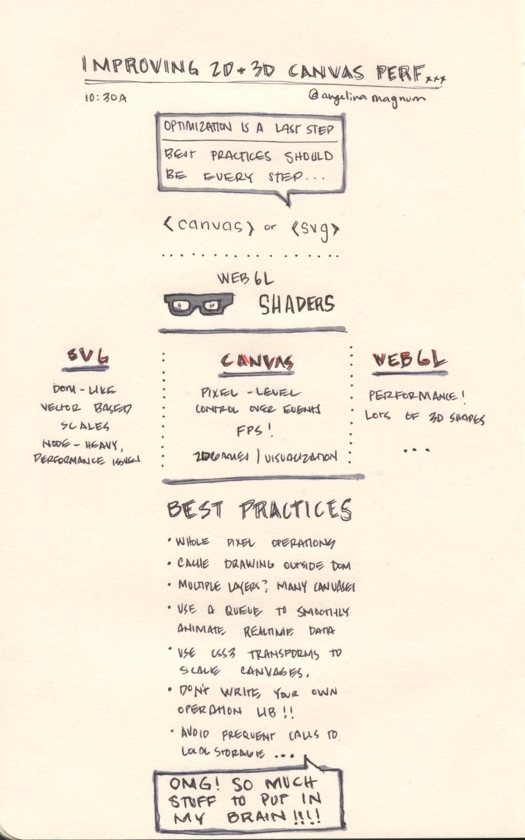 IMPROVING 2D + 3D CANVAS PERF...
10:30A
@angelina magnum
OPTIMIZATION IS A LAST STEP
BEST PRACTICES SHOULD
BE EVERY STEP...
<canvas> or <svg>
WEBGL
SHADERS
SVG
DOM-LIKE
VECTOR BASED
SCALES
NODE-HEAVY,
PERFORMANCE ISSUES
CANVAS
PIXEL-LEVEL
CONTROL OVER EVENTS
FPS!
2D GAMES | VISUALIZATION
WEBGL
PERFORMANCE!
LOTS OF 3D SHAPES
...
BEST PRACTICES
• WHOLE PIXEL OPERATIONS
• CACHE DRAWING OUTSIDE DOM
• MULTIPLE LAYERS?, MANY CANVASES
• USE A QUEUE TO SMOOTHLY
ANIMATE REALTIME DATA
• USE CSS3 TRANSFORMS TO
SCALE CANVASES.
• DON'T WRITE YOUR OWN
OPERATION LIB!!
• AVOID FREQUENT CALLS TO
LOCAL STORAGE...
OMG! SO MUCH
STUFF TO PUT IN
MY BRAIN!!!!